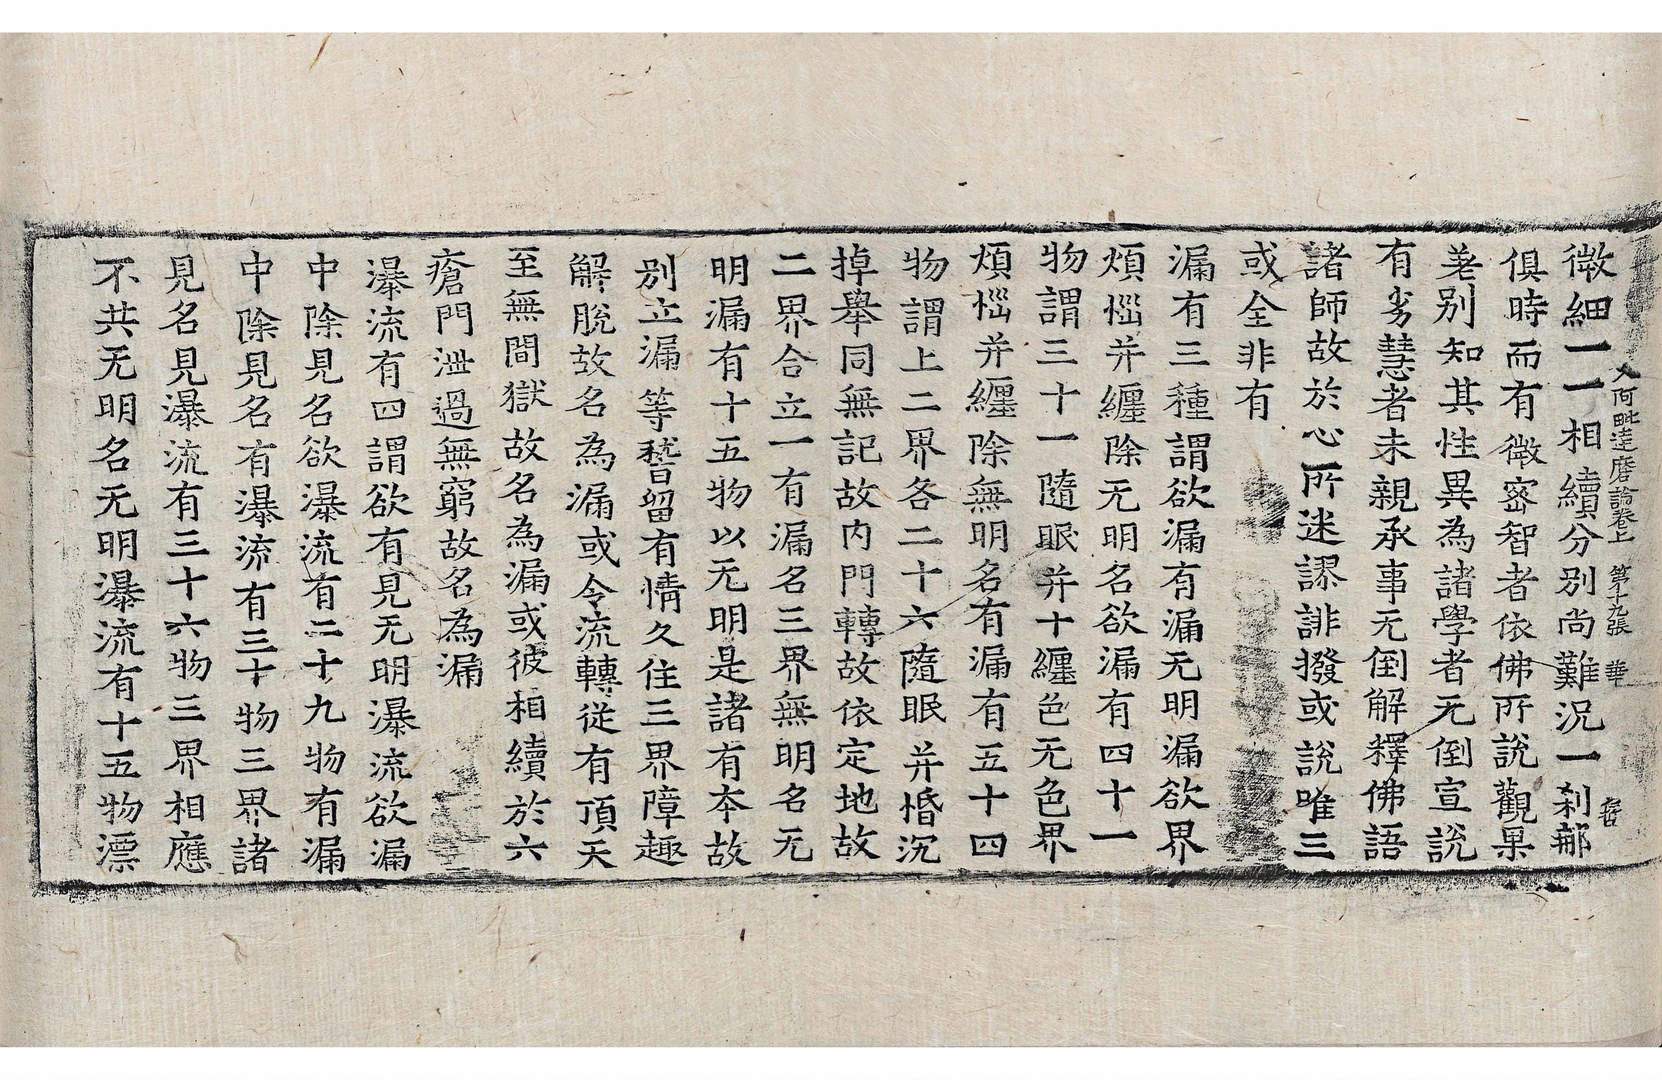 微細一一相續分別尚難況一刹那
入阿毗達磨論卷上 第十九張 華
俱時而有微密智者依佛所說觀果
差別知其性異為諸學者无倒宣說
有劣慧者未親承事无倒解釋佛語
諸師故於心所迷謬誹撥或說唯三
或全非有
漏有三種謂欲漏有漏无明漏欲界
煩惱并纏除无明名欲漏有四十一
物謂三十一隨眠并十纏色无色界
煩惱并纏除無明名有漏有五十四
物謂上二界各二十六隨眠并惛沉
掉舉同無記故内門轉故依定地故
二界合立一有漏名三界無明名无
明漏有十五物以无明是諸有本故
別立漏等稽留有情久住三界障趣
解脫故名為漏或令流轉從有頂天
至無間獄故名為漏或彼相續於六
瘡門泄過無窮故名為漏
瀑流有四謂欲有見无明瀑流欲漏
中除見名欲瀑流有二十九物有漏
中除見名有瀑流有三十物三界諸
見名見瀑流有三十六物三界相應
不共无明名无明瀑流有十五物漂